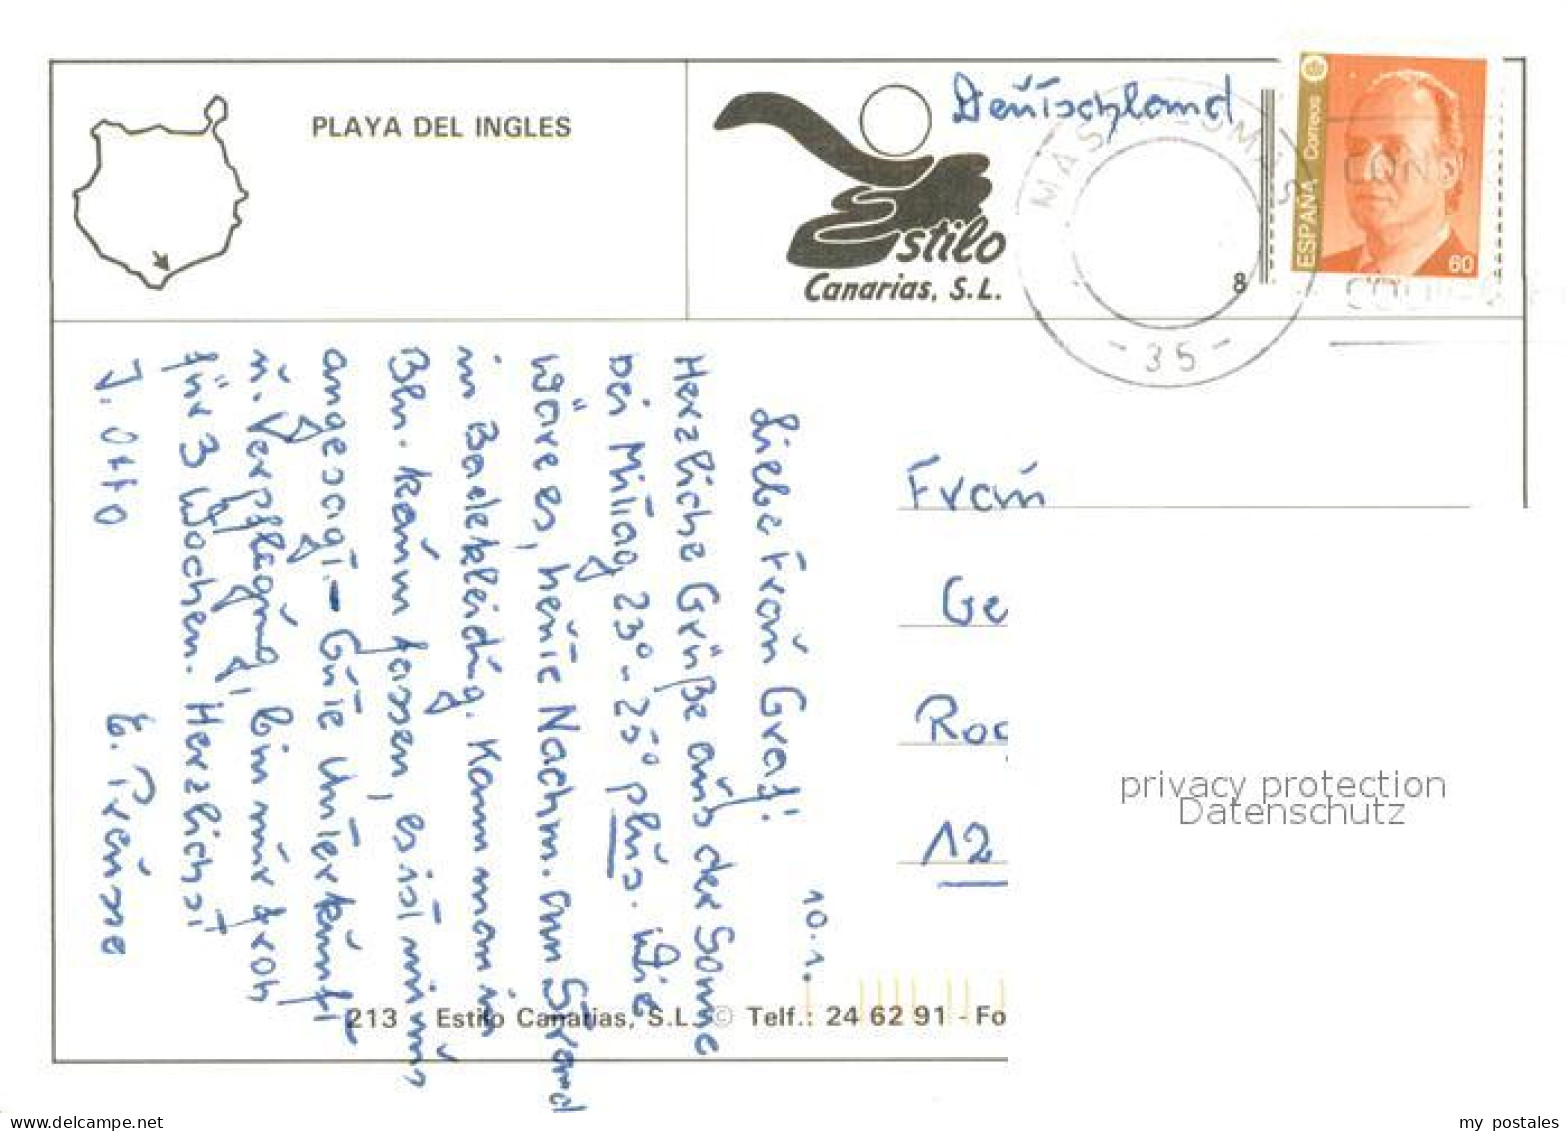 PLAYA DEL INGLES
Estilo
Canarias, S.L.
Deutschland
8
ESPAÑA Correos
60
- 35 -
10.1.
Liebe Frau Graf!
Herzliche Grüße aus der Sonne
bei Mittag 23° - 25° plus. Wie
wäre es, heute Nachm. am Strand
in Badekleidg. Kann man in
Bln. kaum fassen, es ist mir
angesagt. - Gute Unterkunft
u. Verpflegung, bin nur froh
für 3 Wochen. Herzlichst
J. Otto
Frau
Ge
Ro
12
213 Estilo Canarias, S.L. © Telf.: 24 62 91 - Fo
privacy protection
Datenschutz
www.delcampe.net
my_postales